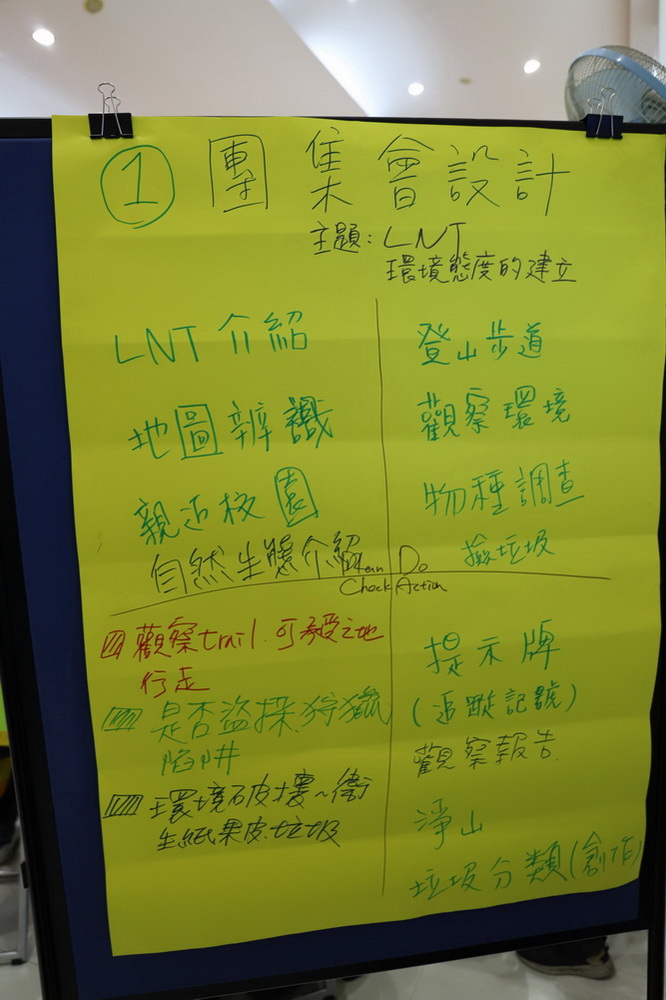 ① 團集會設計
主題：LNT
環境態度的建立
LNT 介紹
地圖辨識
親近校園
自然生態介紹
登山步道
觀察環境
物種調查
撿垃圾
Plan Do
Check Action
觀察trail.可承受之地
行走
是否盜採.狩獵
陷阱
環境破壞~衛
生紙果皮.垃圾
提示牌
(追蹤記號)
觀察報告.
淨山
垃圾分類(創作)